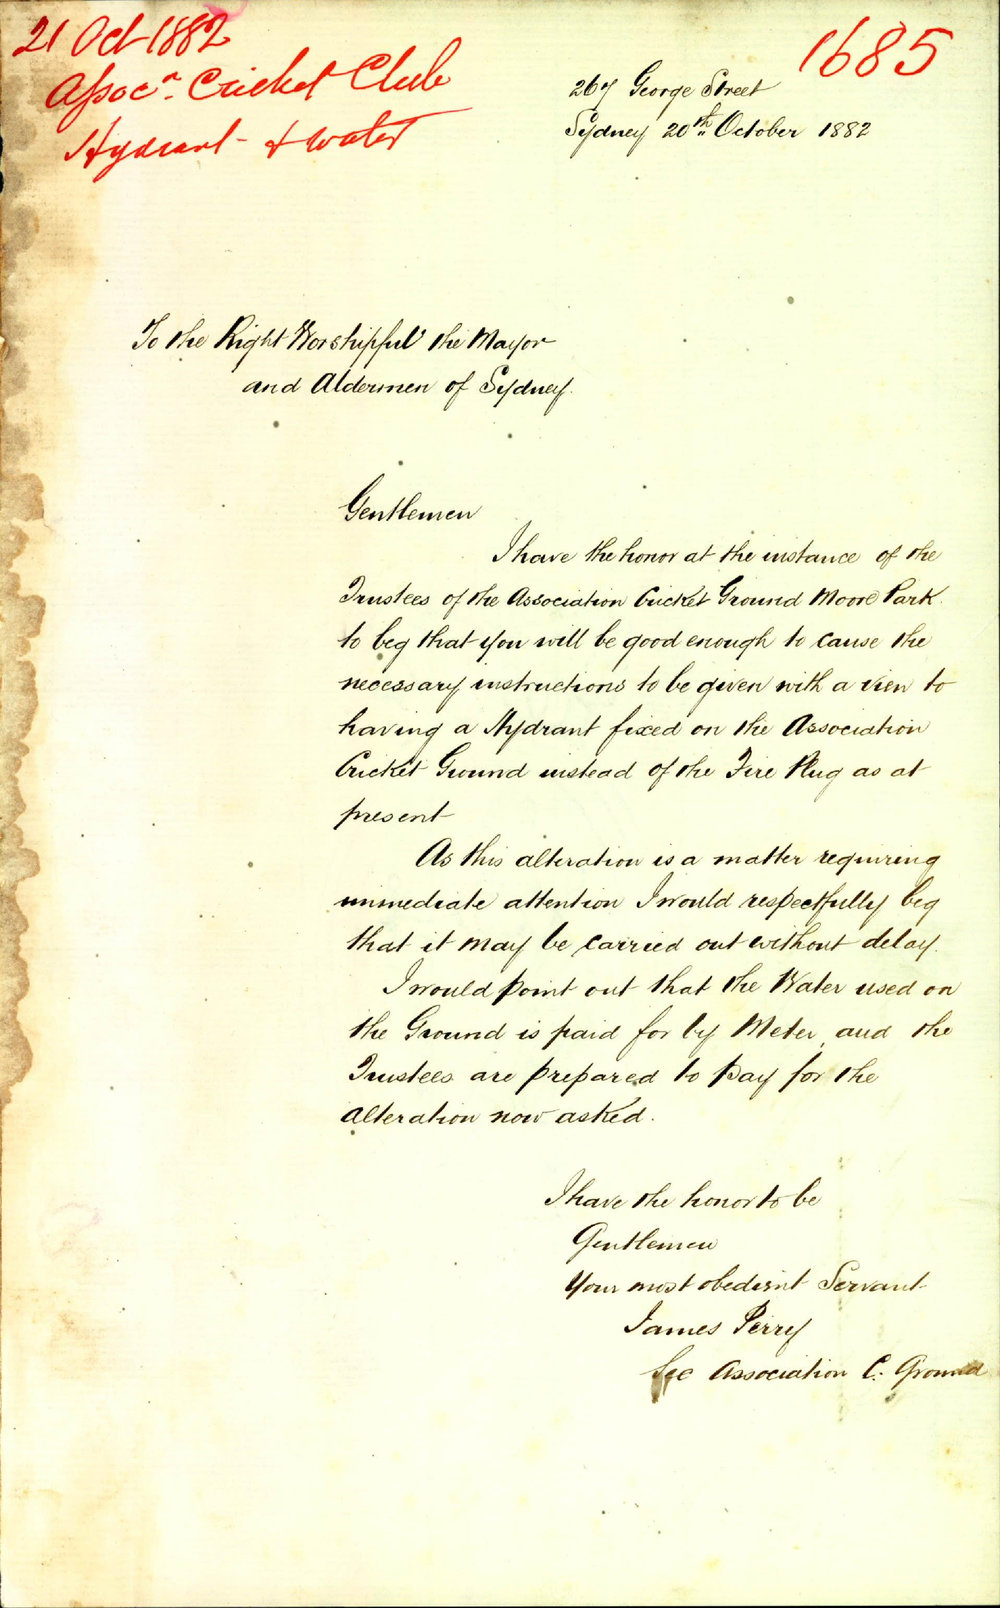 21 Oct 1882
Assocn. Cricket Club
Hydrant & water
1685
267 George Street
Sydney 20th October 1882
To the Right Worshipful the Mayor
and Aldermen of Sydney.
Gentlemen
I have the honor at the instance of the
Trustees of the Association Cricket Ground Moore Park.
to beg that you will be good enough to cause the
necessary instructions to be given with a view to
having a Hydrant fixed on the Association
Cricket Ground instead of the Fire Plug as at
present
As this alteration is a matter requiring
immediate attention I would respectfully beg
that it may be carried out without delay.
I would point out that the Water used on
the Ground is paid for by Meter, and the
Trustees are prepared to pay for the
alteration now asked.
I have the honor to be
Gentlemen
Your most obedient Servant
James Perry
Sec Association C. Ground